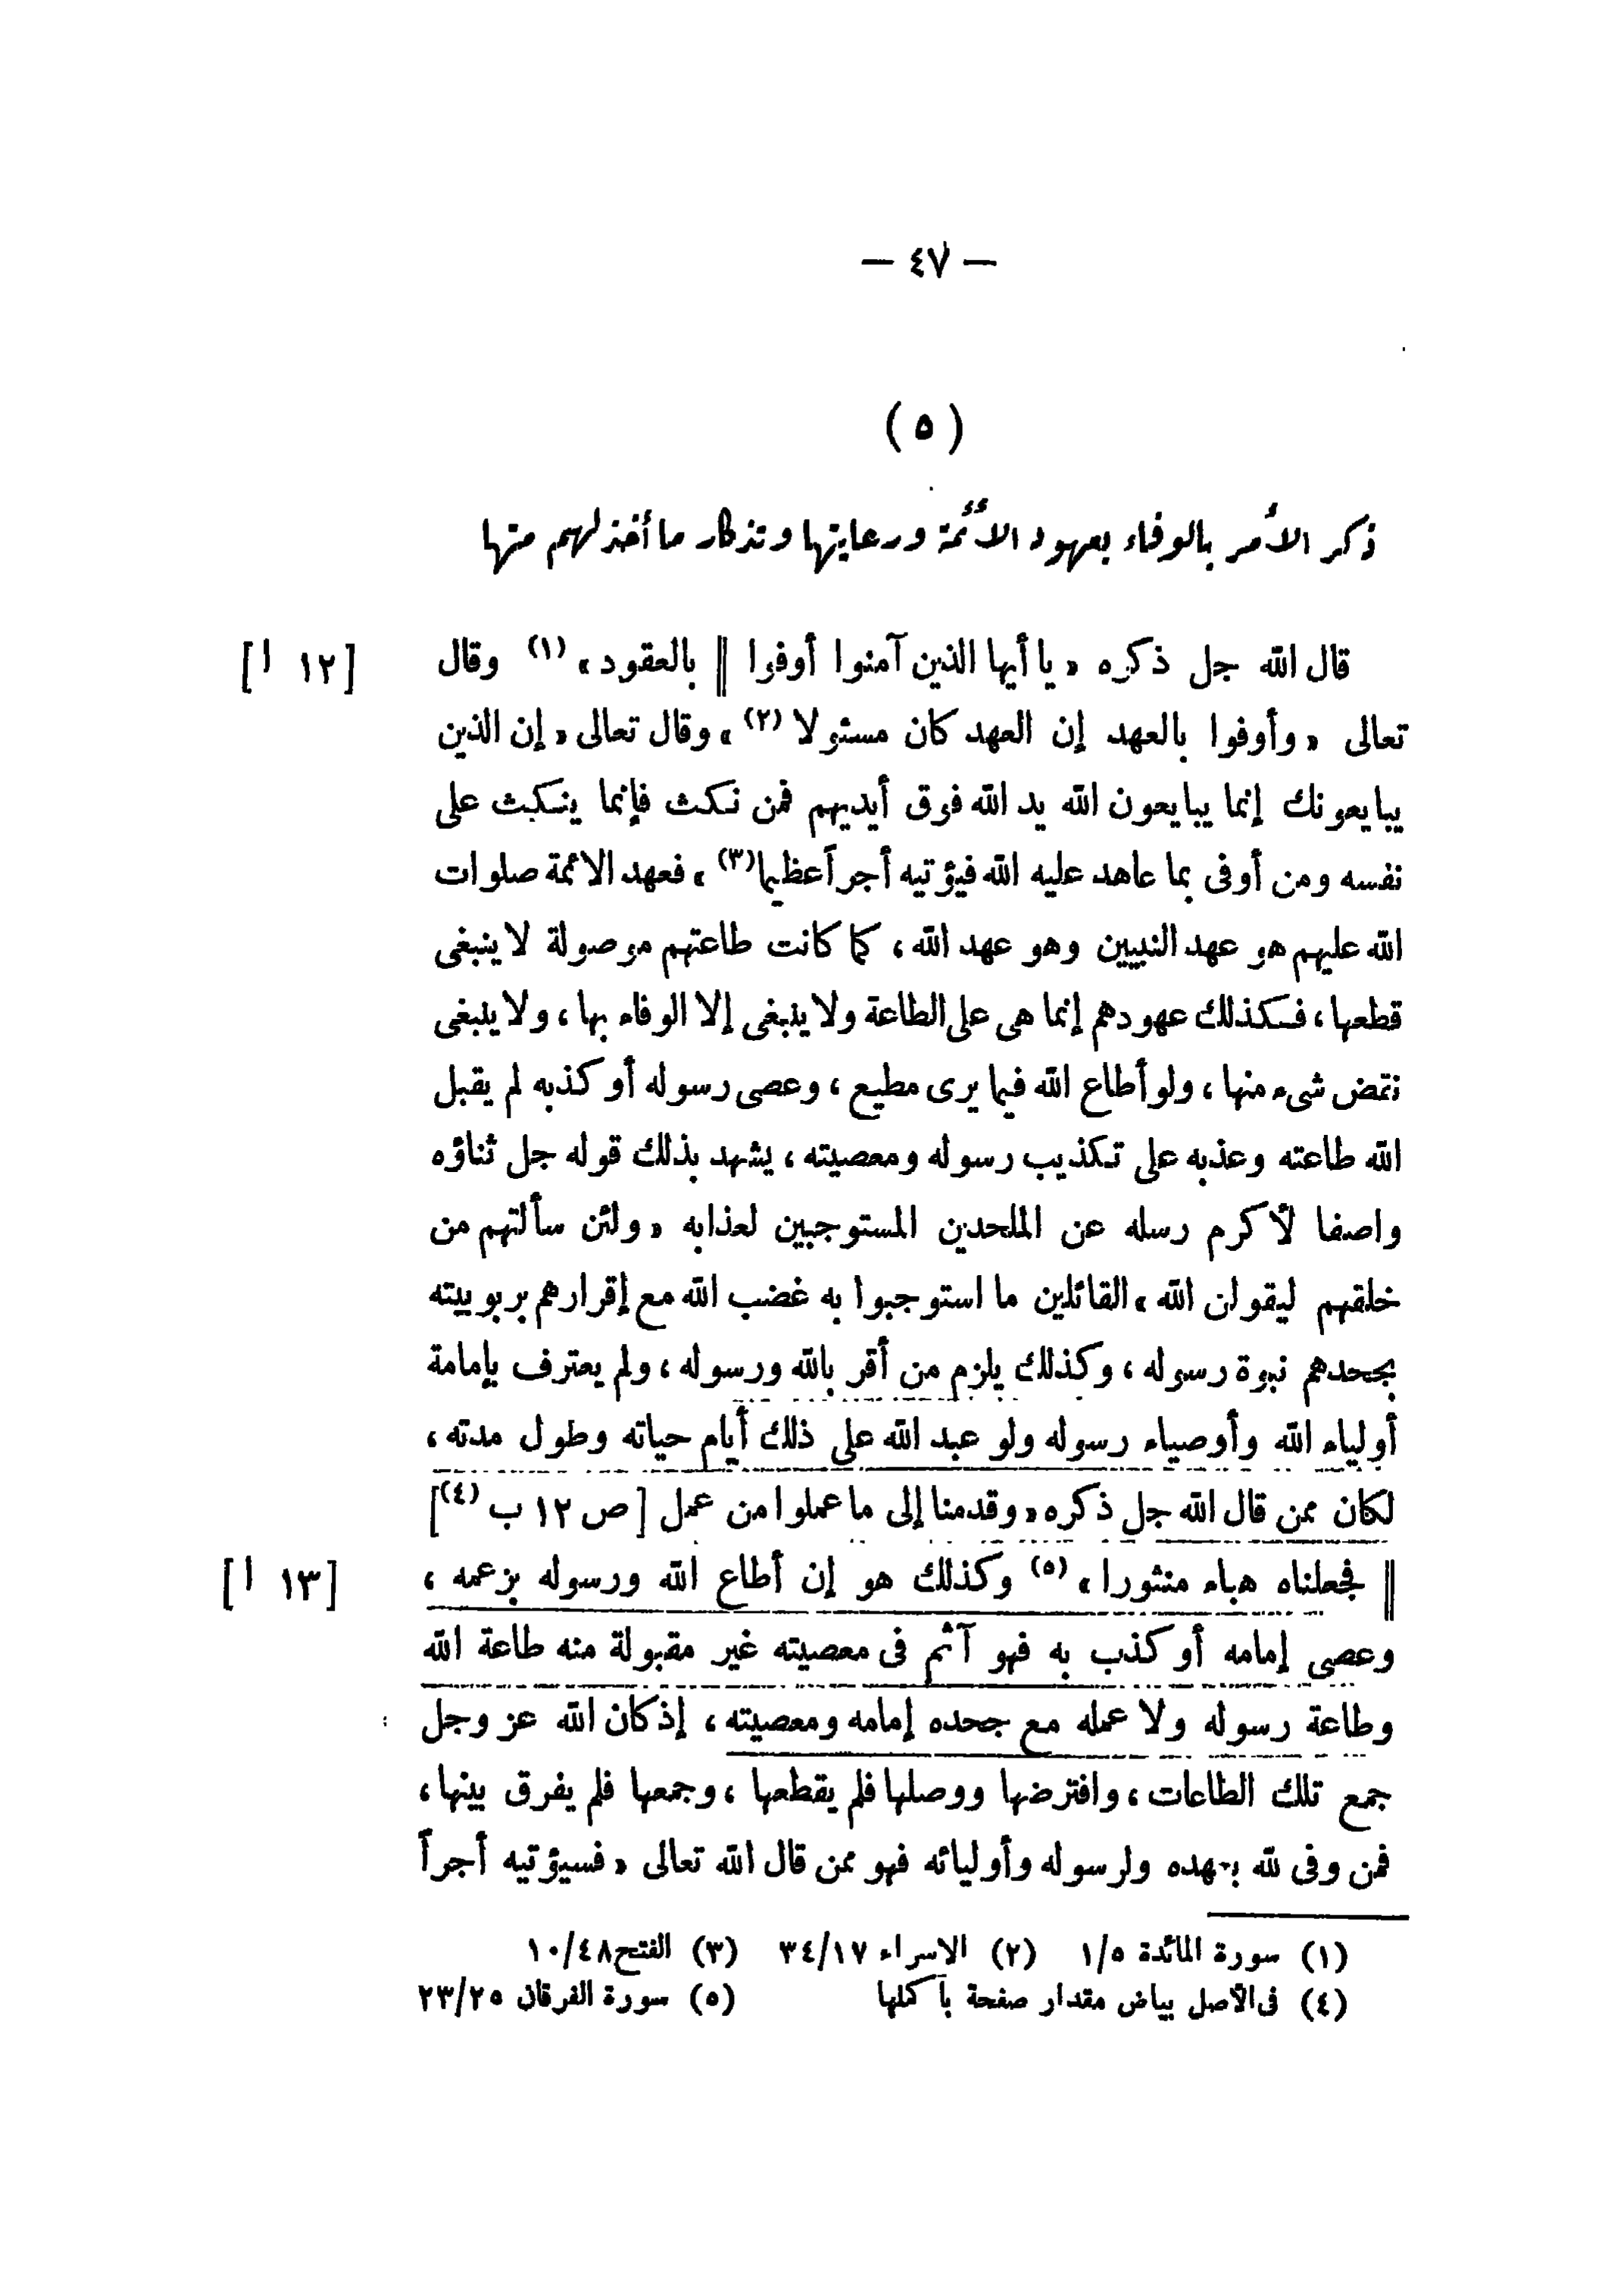 — ٤٧ —
( ٥ )
ذكر الأمر بالوفاء بعهود الأئمة ورعايتها وتذكار ما أخذ لهم منها
قال الله جل ذكره « يا أيها الذين آمنوا أوفوا || بالعقود » (١) وقال [١٢ ا]
تعالى « وأوفوا بالعهد إن العهد كان مسئولا (٢) » وقال تعالى « إن الذين
يبايعونك إنما يبايعون الله يد الله فوق أيديهم فمن نكث فإنما ينكث على
نفسه ومن أوفى بما عاهد عليه الله فيؤتيه أجراً عظيما (٣) » فعهد الائمة صلوات
الله عليهم هو عهد النبيين وهو عهد الله ، كما كانت طاعتهم موصولة لا ينبغى
قطعها ، فكذلك عهودهم إنما هى على الطاعة ولا ينبغى إلا الوفاء بها ، ولا ينبغى
نقض شىء منها ، ولو أطاع الله فيما يرى مطيع ، وعصى رسوله أو كذبه لم يقبل
الله طاعته وعذبه على تكذيب رسوله ومعصيته ، يشهد بذلك قوله جل ثناؤه
واصفا لأكرم رسله عن الملحدين المستوجبين لعذابه « ولئن سألتهم من
خلقهم ليقولن الله » القائلين ما استوجبوا به غضب الله مع إقرارهم بربوبيته
بجحدهم نبوة رسوله ، وكذلك يلزم من أقر بالله ورسوله ، ولم يعترف بإمامة
أولياء الله وأوصياء رسوله ولو عبد الله على ذلك أيام حياته وطول مدته ،
لكان ممن قال الله جل ذكره « وقدمنا إلى ما عملوا من عمل [ ص ١٢ ب (٤) ]
|| فجعلناه هباء منثورا » (٥) وكذلك هو إن أطاع الله ورسوله بزعمه ، [١٣ ا]
وعصى إمامه أو كذب به فهو آثم فى معصيته غير مقبولة منه طاعة الله
وطاعة رسوله ولا عمله مع جحده إمامه ومعصيته ، إذ كان الله عز وجل
جمع تلك الطاعات ، وافترضها ووصلها فلم يقطعها ، وجمعها فلم يفرق بينها ،
فمن وفى لله بعهده ولرسوله وأوليائه فهو ممن قال الله تعالى « فسيؤتيه أجراً
(١) سورة المائدة ١/٥ (٢) الاسراء ٣٤/١٧ (٣) الفتح ١٠/٤٨
(٤) فى الأصل بياض مقدار صفحة بأكملها (٥) سورة الفرقان ٢٣/٢٥